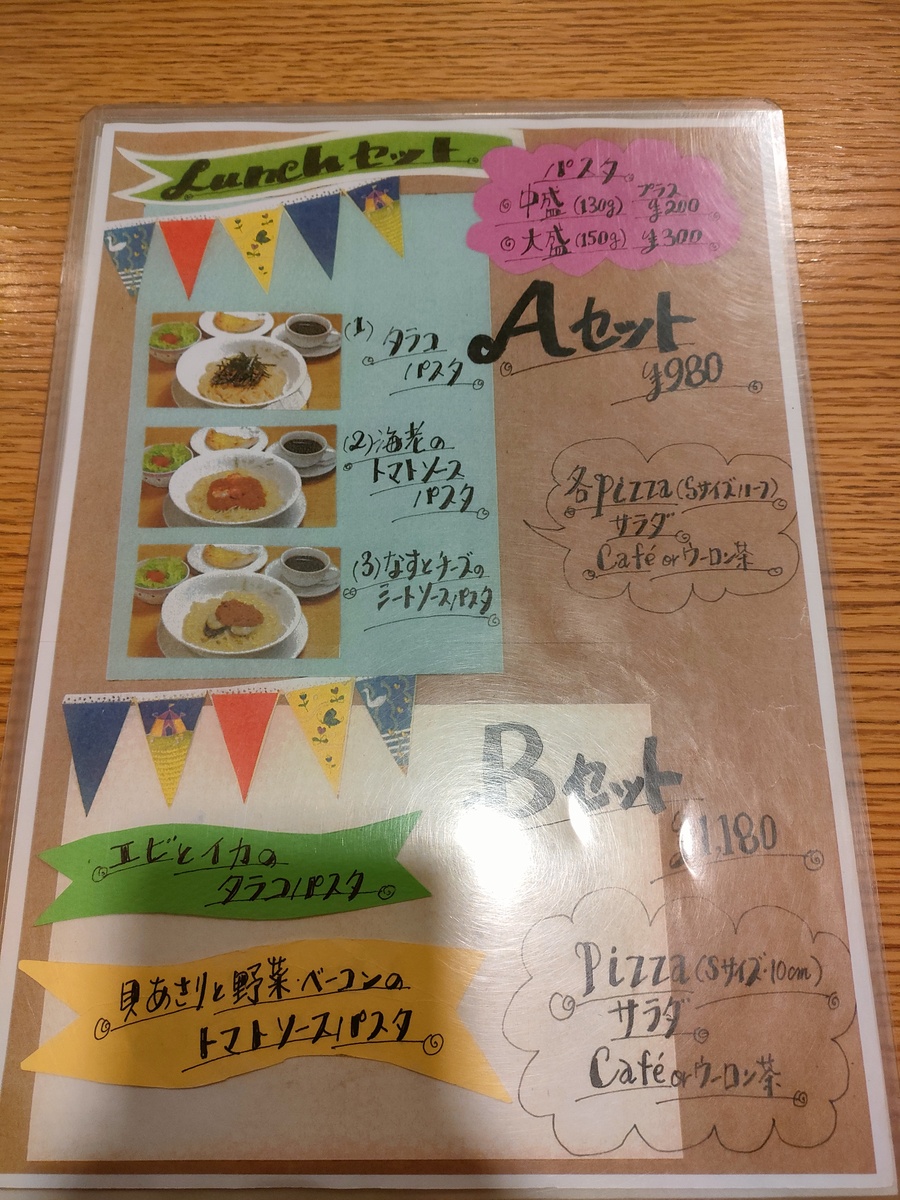 Lunchセット
パスタ
中盛(130g) プラス ¥200
大盛(150g) ¥300
Aセット
¥980
(1) タラコ
パスタ
(2)海老の
トマトソース
パスタ
(3)なすとチーズの
ミートソースパスタ
各Pizza(Sサイズハーフ)
サラダ
Café or ウーロン茶
Bセット
¥1,180
エビとイカの
タラコパスタ
貝あさりと野菜・ベーコンの
トマトソースパスタ
Pizza(Sサイズ・10cm)
サラダ
Café or ウーロン茶